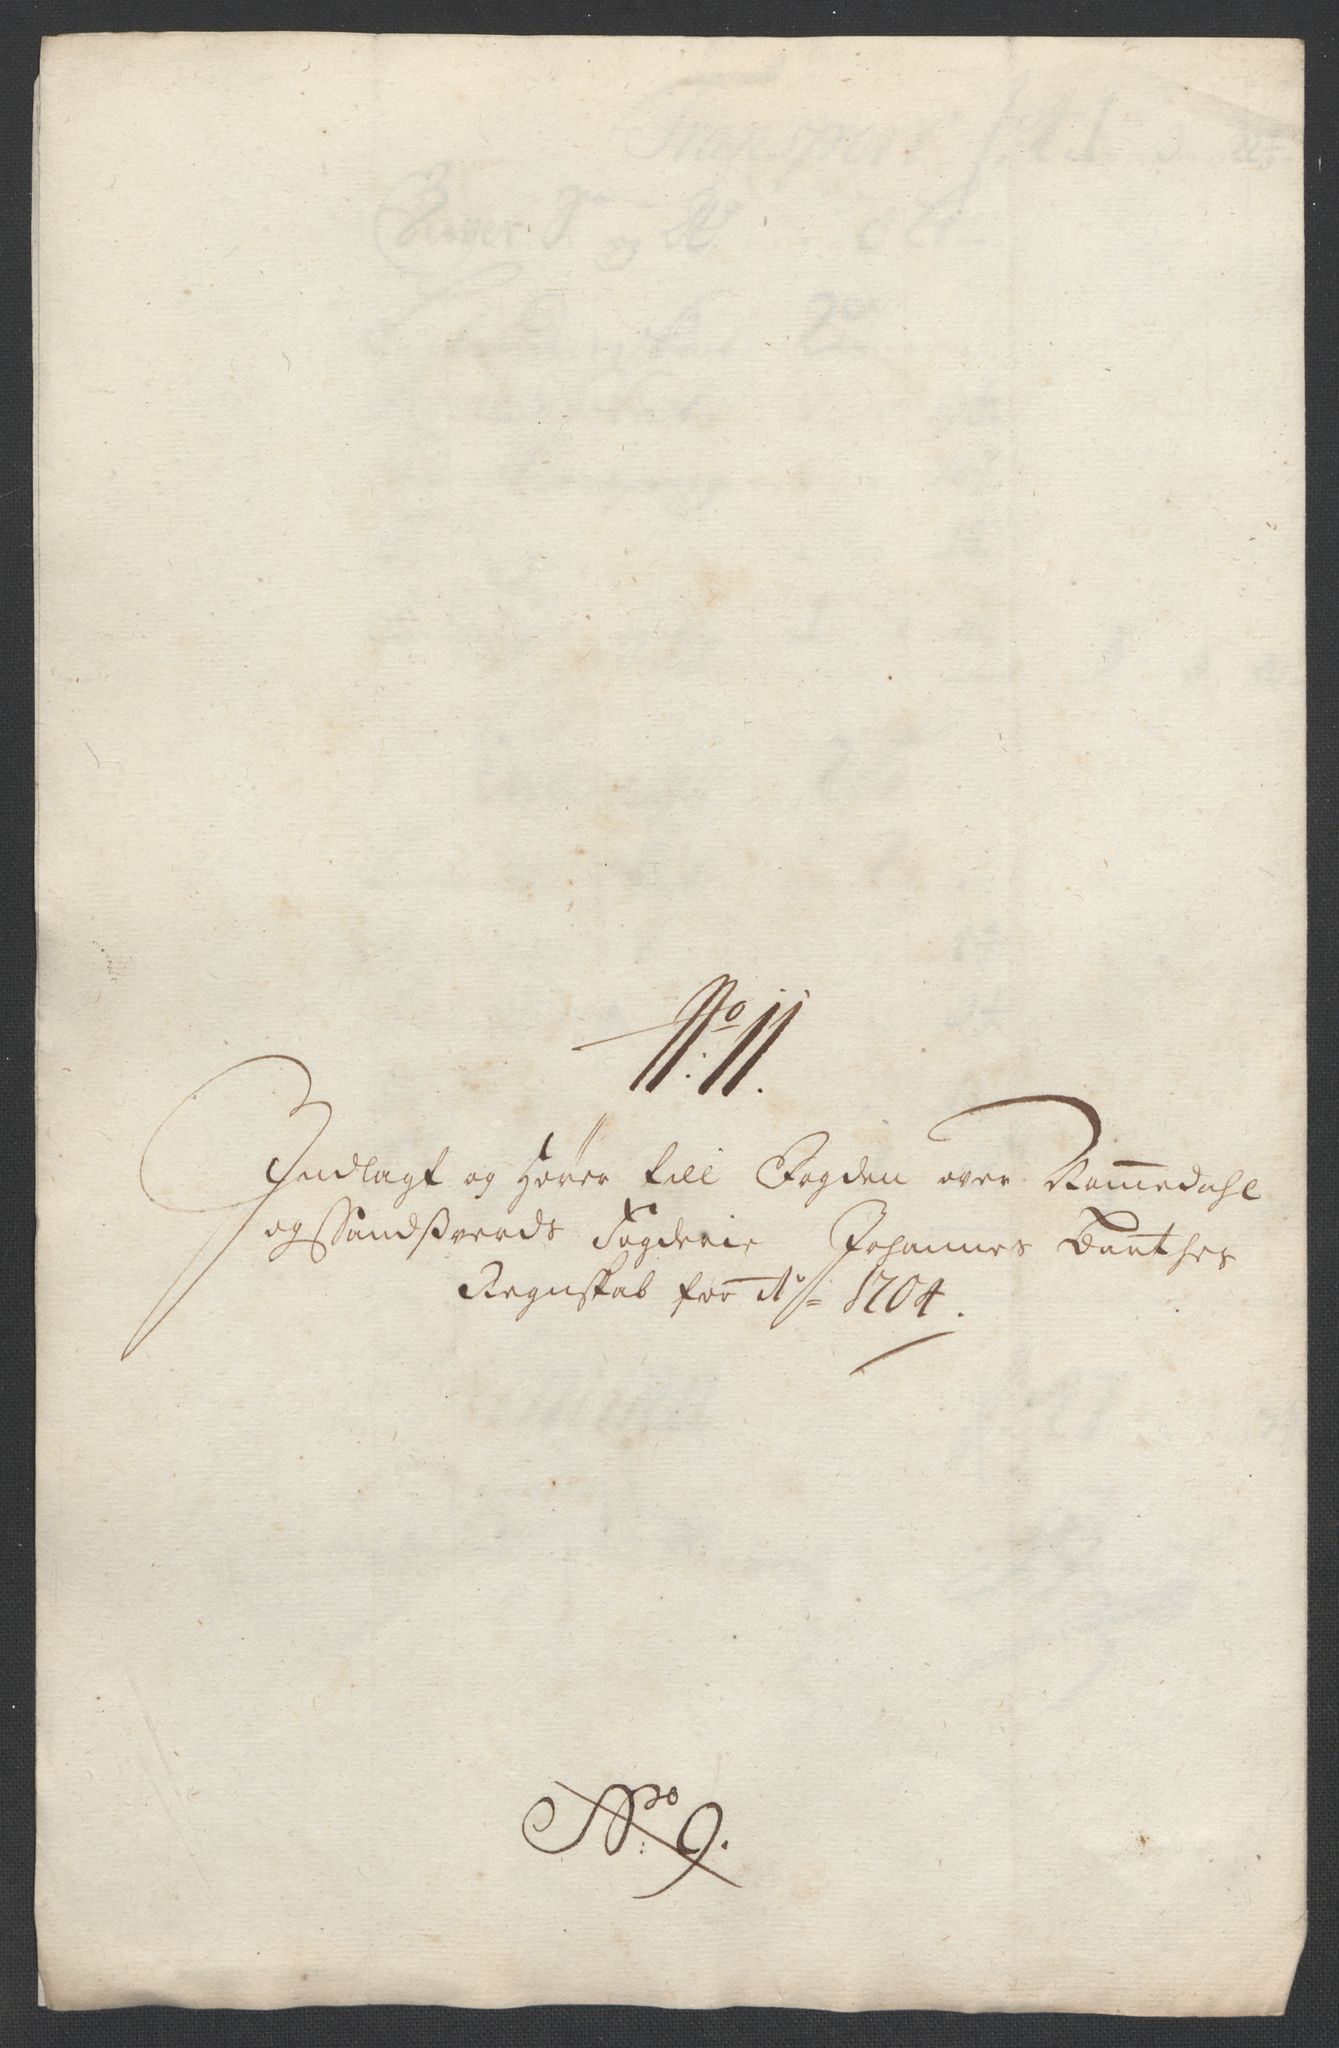 No: 11.
Indlagt og Hører till Fogden over Nommedahl
og Sandßverds Fogderie Johannes Barthes
Regnskab for Ao 1704.
No: 9.